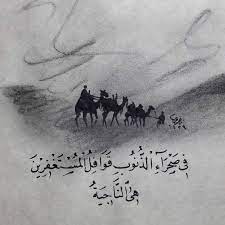 في صَحْرَاءِ الذُّنُوبِ قَوَافِلُ الْمُسْتَغْفِرِينَ
هِيَ النَّاجِيَةُ